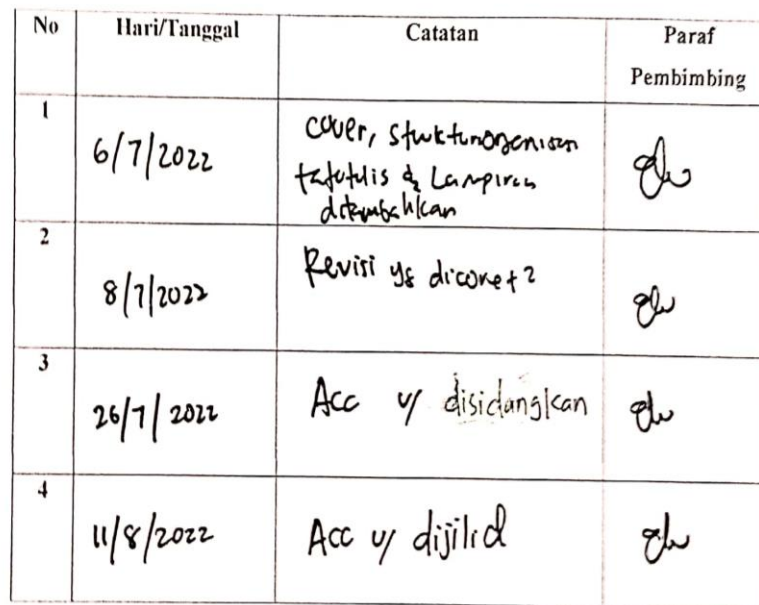 No Hari/Tanggal Catatan Paraf
Pembimbing
1
6/7/2022
cover, strukturorganisasi
& Lampiran
ditambahkan
2
8/7/2022
Revisi yg dicoret2
3
26/7/2022
Acc u/ disidangkan
4
11/8/2022
Acc u/ dijilid